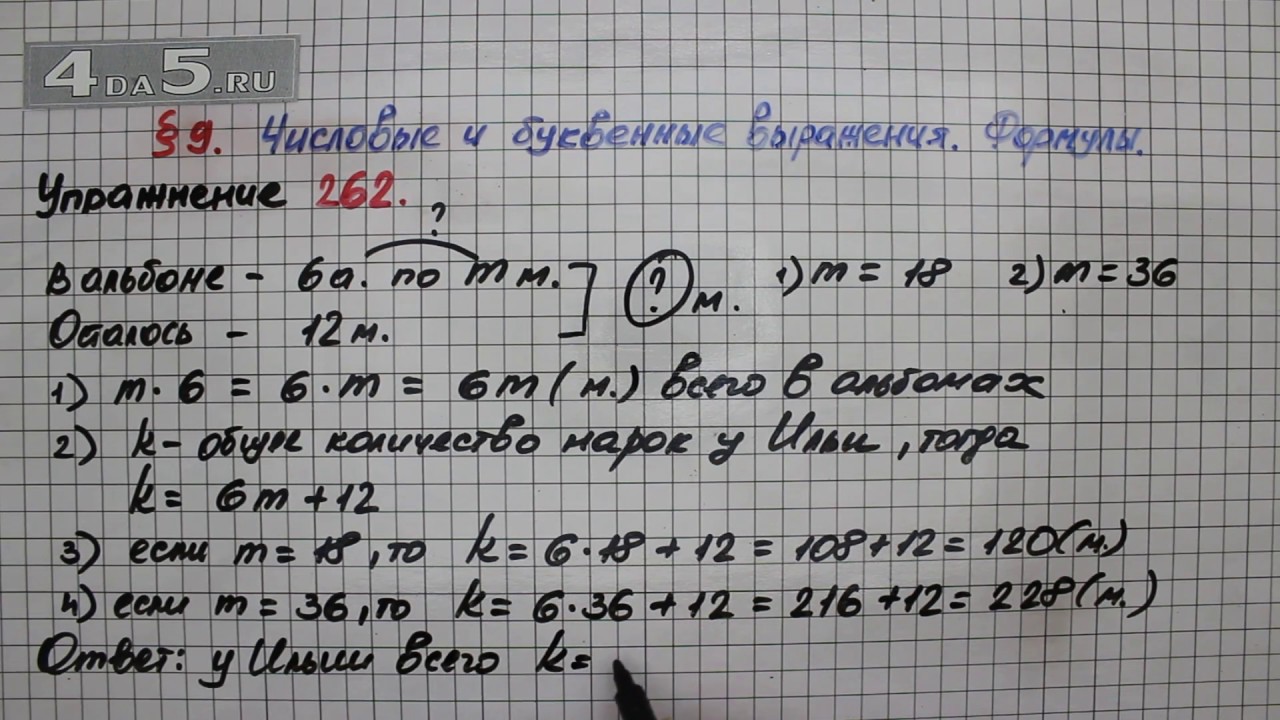 4DA5.RU
§9. Числовые и буквенные выражения. Формулы.
Упражнение 262.
?
В альбоме - 6а. по m м.
? м. 1) m = 18 2) m = 36
Осталось - 12 м.
1) m · 6 = 6 · m = 6m (м.) всего в альбомах
2) k - общее количество марок у Ильи, тогда
k = 6m + 12
3) если m = 18, то k = 6 · 18 + 12 = 108 + 12 = 120 (м.)
4) если m = 36, то k = 6 · 36 + 12 = 216 + 12 = 228 (м.)
Ответ: у Ильи всего k =